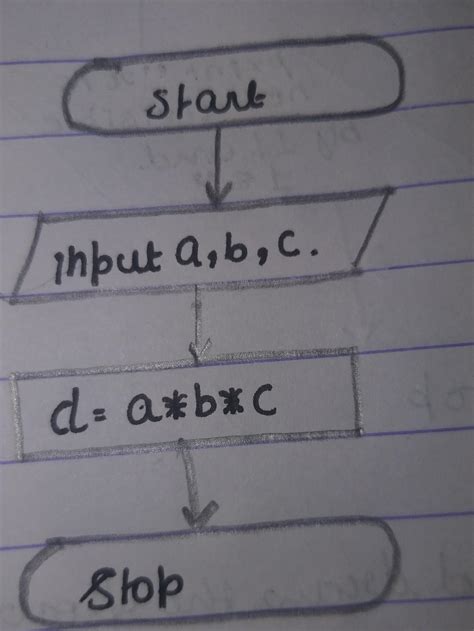 Start
input a, b, c.
d = a*b*c
Stop